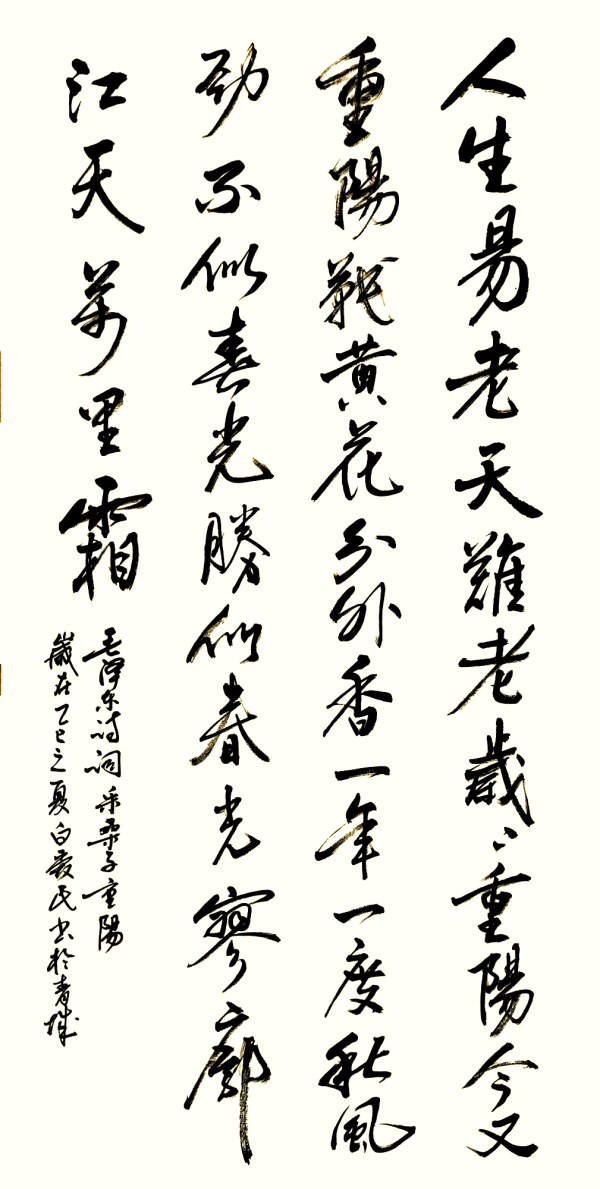 人生易老天難老歲々重陽今又
重陽戰黄花分外香一年一度秋風
勁不似春光勝似春光寥廓
江天萬里霜
毛泽东诗词采桑子重陽
歲在乙巳之夏白民书於青城